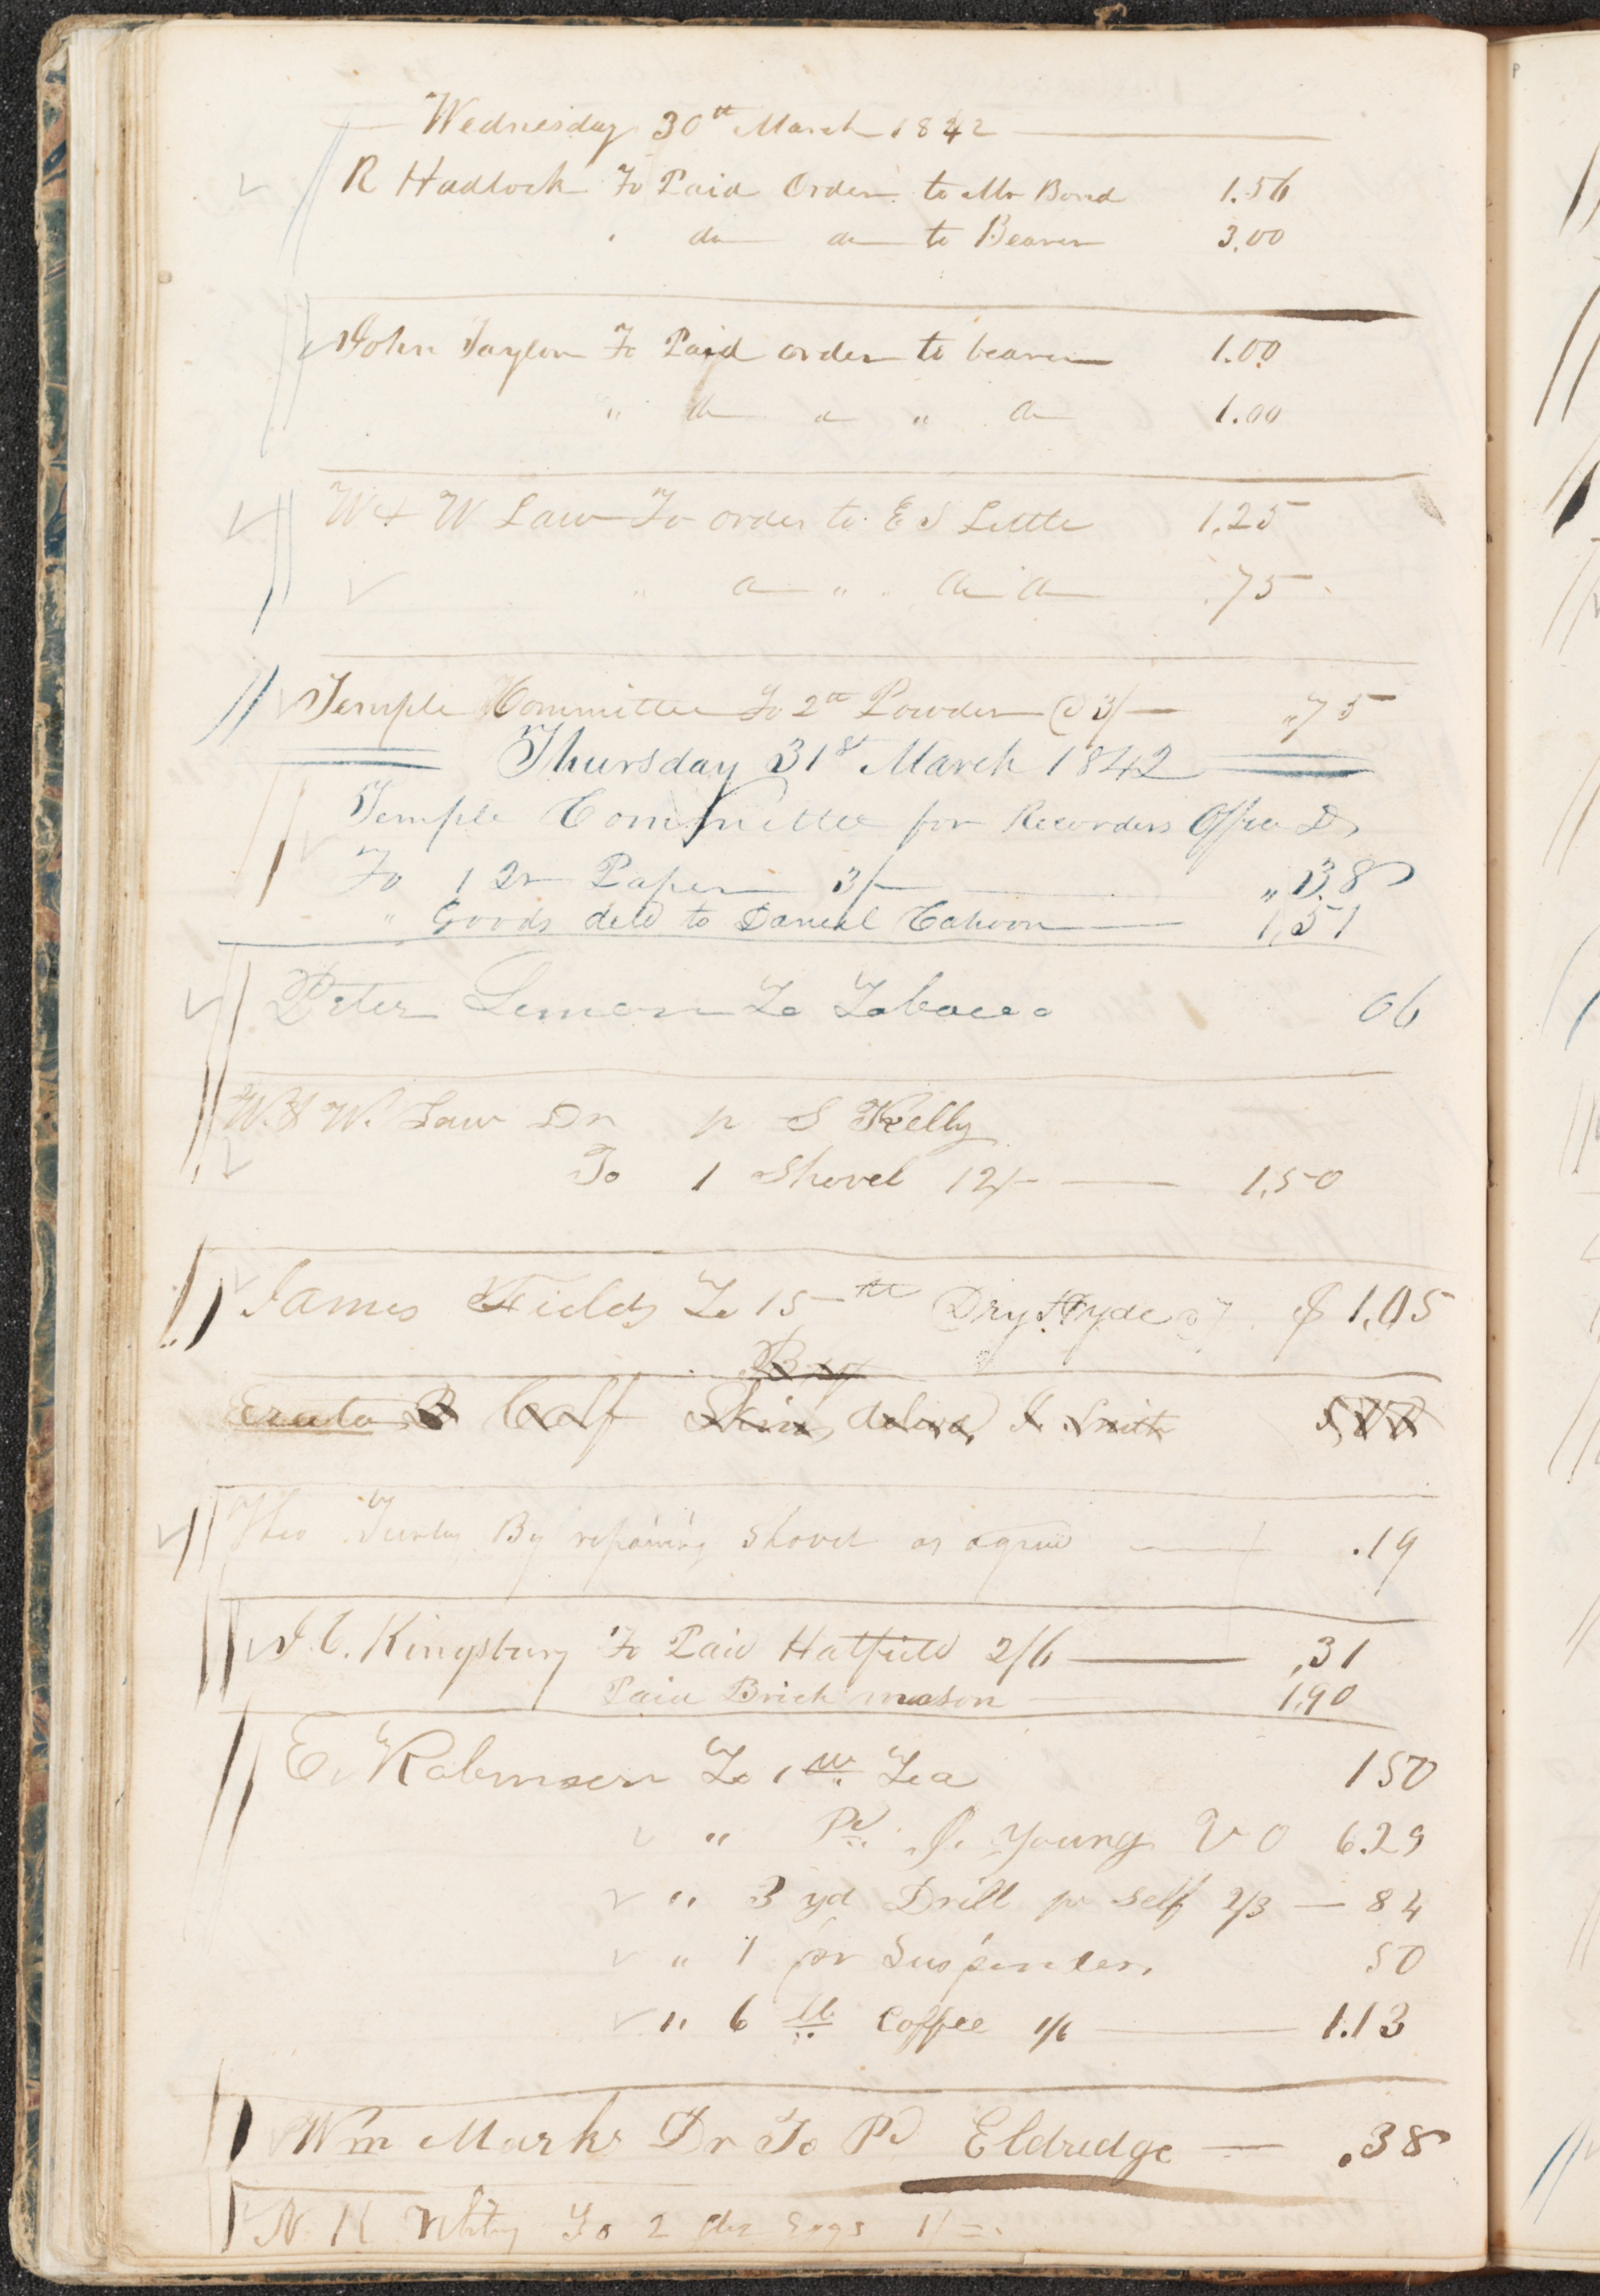 Wednesday 30th March 1842
R Hadlock To Paid Order to Mr Bond 1.56
" do do to Bearer 3.00
John Taylor To Paid order to bearer 1.00
" do do " do 1.00
W & W Law To order to E S Little 1.25
" do " do do .75
Temple Committee To 2lb Powder @ 3/ "75
Thursday 31st March 1842
Temple Committee for Recorders Office Dr
To 1 Qr Paper 3/ " 38
" Goods deld to Daniel Cahoon 1,51
Peter Lemon To Tobacco 06
W. & W. Law Dr pr S Kelly
To 1 Shovel 12/ 1,50
James Fields To 15 lb Dry Hyde @ 7 $ 1,05
By
Erata Calf Skins delivd J Smith
Theo Turley By repairing Shovel as agreed .19
J. C. Kingsbury To Paid Hatfield 2/6 ,31
Paid Brick mason 1,90
E. Robinson To 1 lb Tea 150
" Pd J. Young V O 6.29
" 3 yd Drill pr self 2/3 84
" 1 pr Suspenders 50
" 6 lb Coffee 1/6 1.13
Wm Marks Dr To Pd Eldredge .38
N K Whitney To 2 doz Eggs